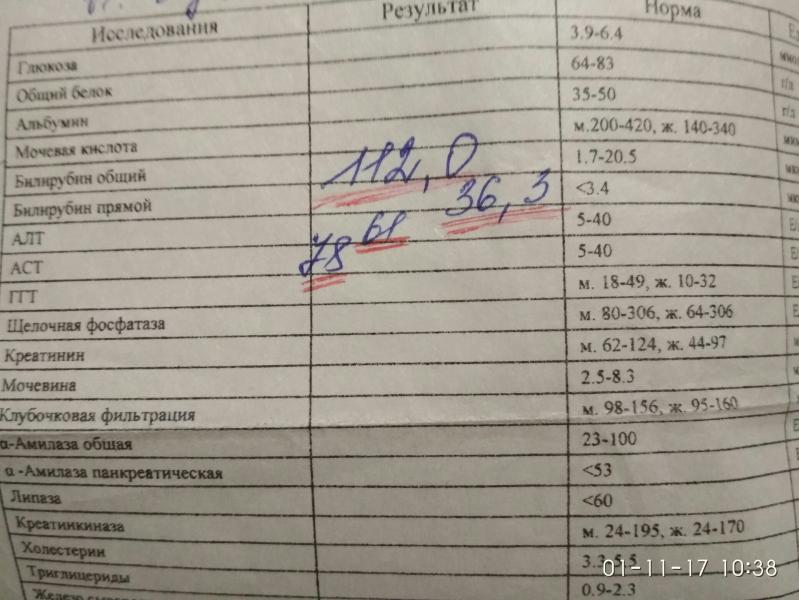 Исследования Результат Норма
Глюкоза 3.9-6.4
Общий белок 64-83 г/л
Альбумин 35-50 г/л
Мочевая кислота м.200-420, ж. 140-340
Билирубин общий 112,0 1.7-20.5
Билирубин прямой 36,3 <3.4
АЛТ 61 5-40
АСТ 78 5-40
ГГТ м. 18-49, ж. 10-32
Щелочная фосфатаза м. 80-306, ж. 64-306
Креатинин м. 62-124, ж. 44-97
Мочевина 2.5-8.3
Клубочковая фильтрация м. 98-156, ж. 95-160
α-Амилаза общая 23-100
α -Амилаза панкреатическая <53
Липаза <60
Креатинкиназа м. 24-195, ж. 24-170
Холестерин 3.3-5.5
Триглицериды 0.9-2.3
Железо
01-11-17 10:38